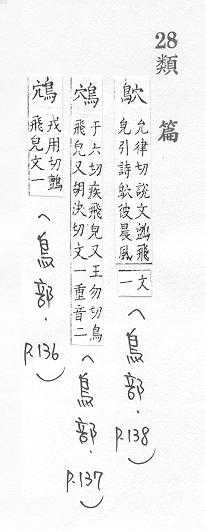 28 類篇
鴥 允律切說文鸇飛皃引詩鴥彼晨風文一（鳥部．P.138）
鴪 于六切疾飛皃又王勿切鳥飛皃又胡決切文一重音二（鳥部．P.137）
戎用切鸇飛皃文一（鳥部．P.136）